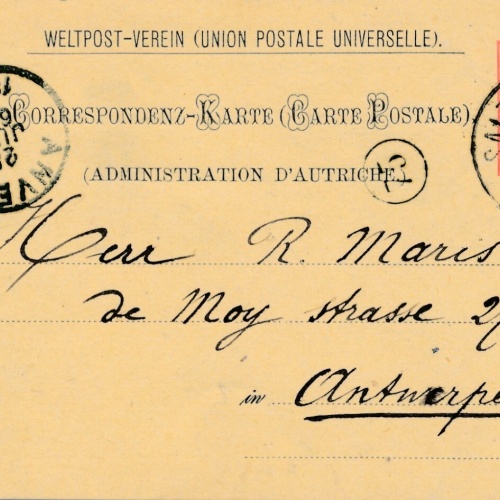 WELTPOST-VEREIN (UNION POSTALE UNIVERSELLE).
CORRESPONDENZ-KARTE (CARTE POSTALE),
(ADMINISTRATION D'AUTRICHE)
Herr R. Maris
de Moy strasse
in Antwerpe
ANVE